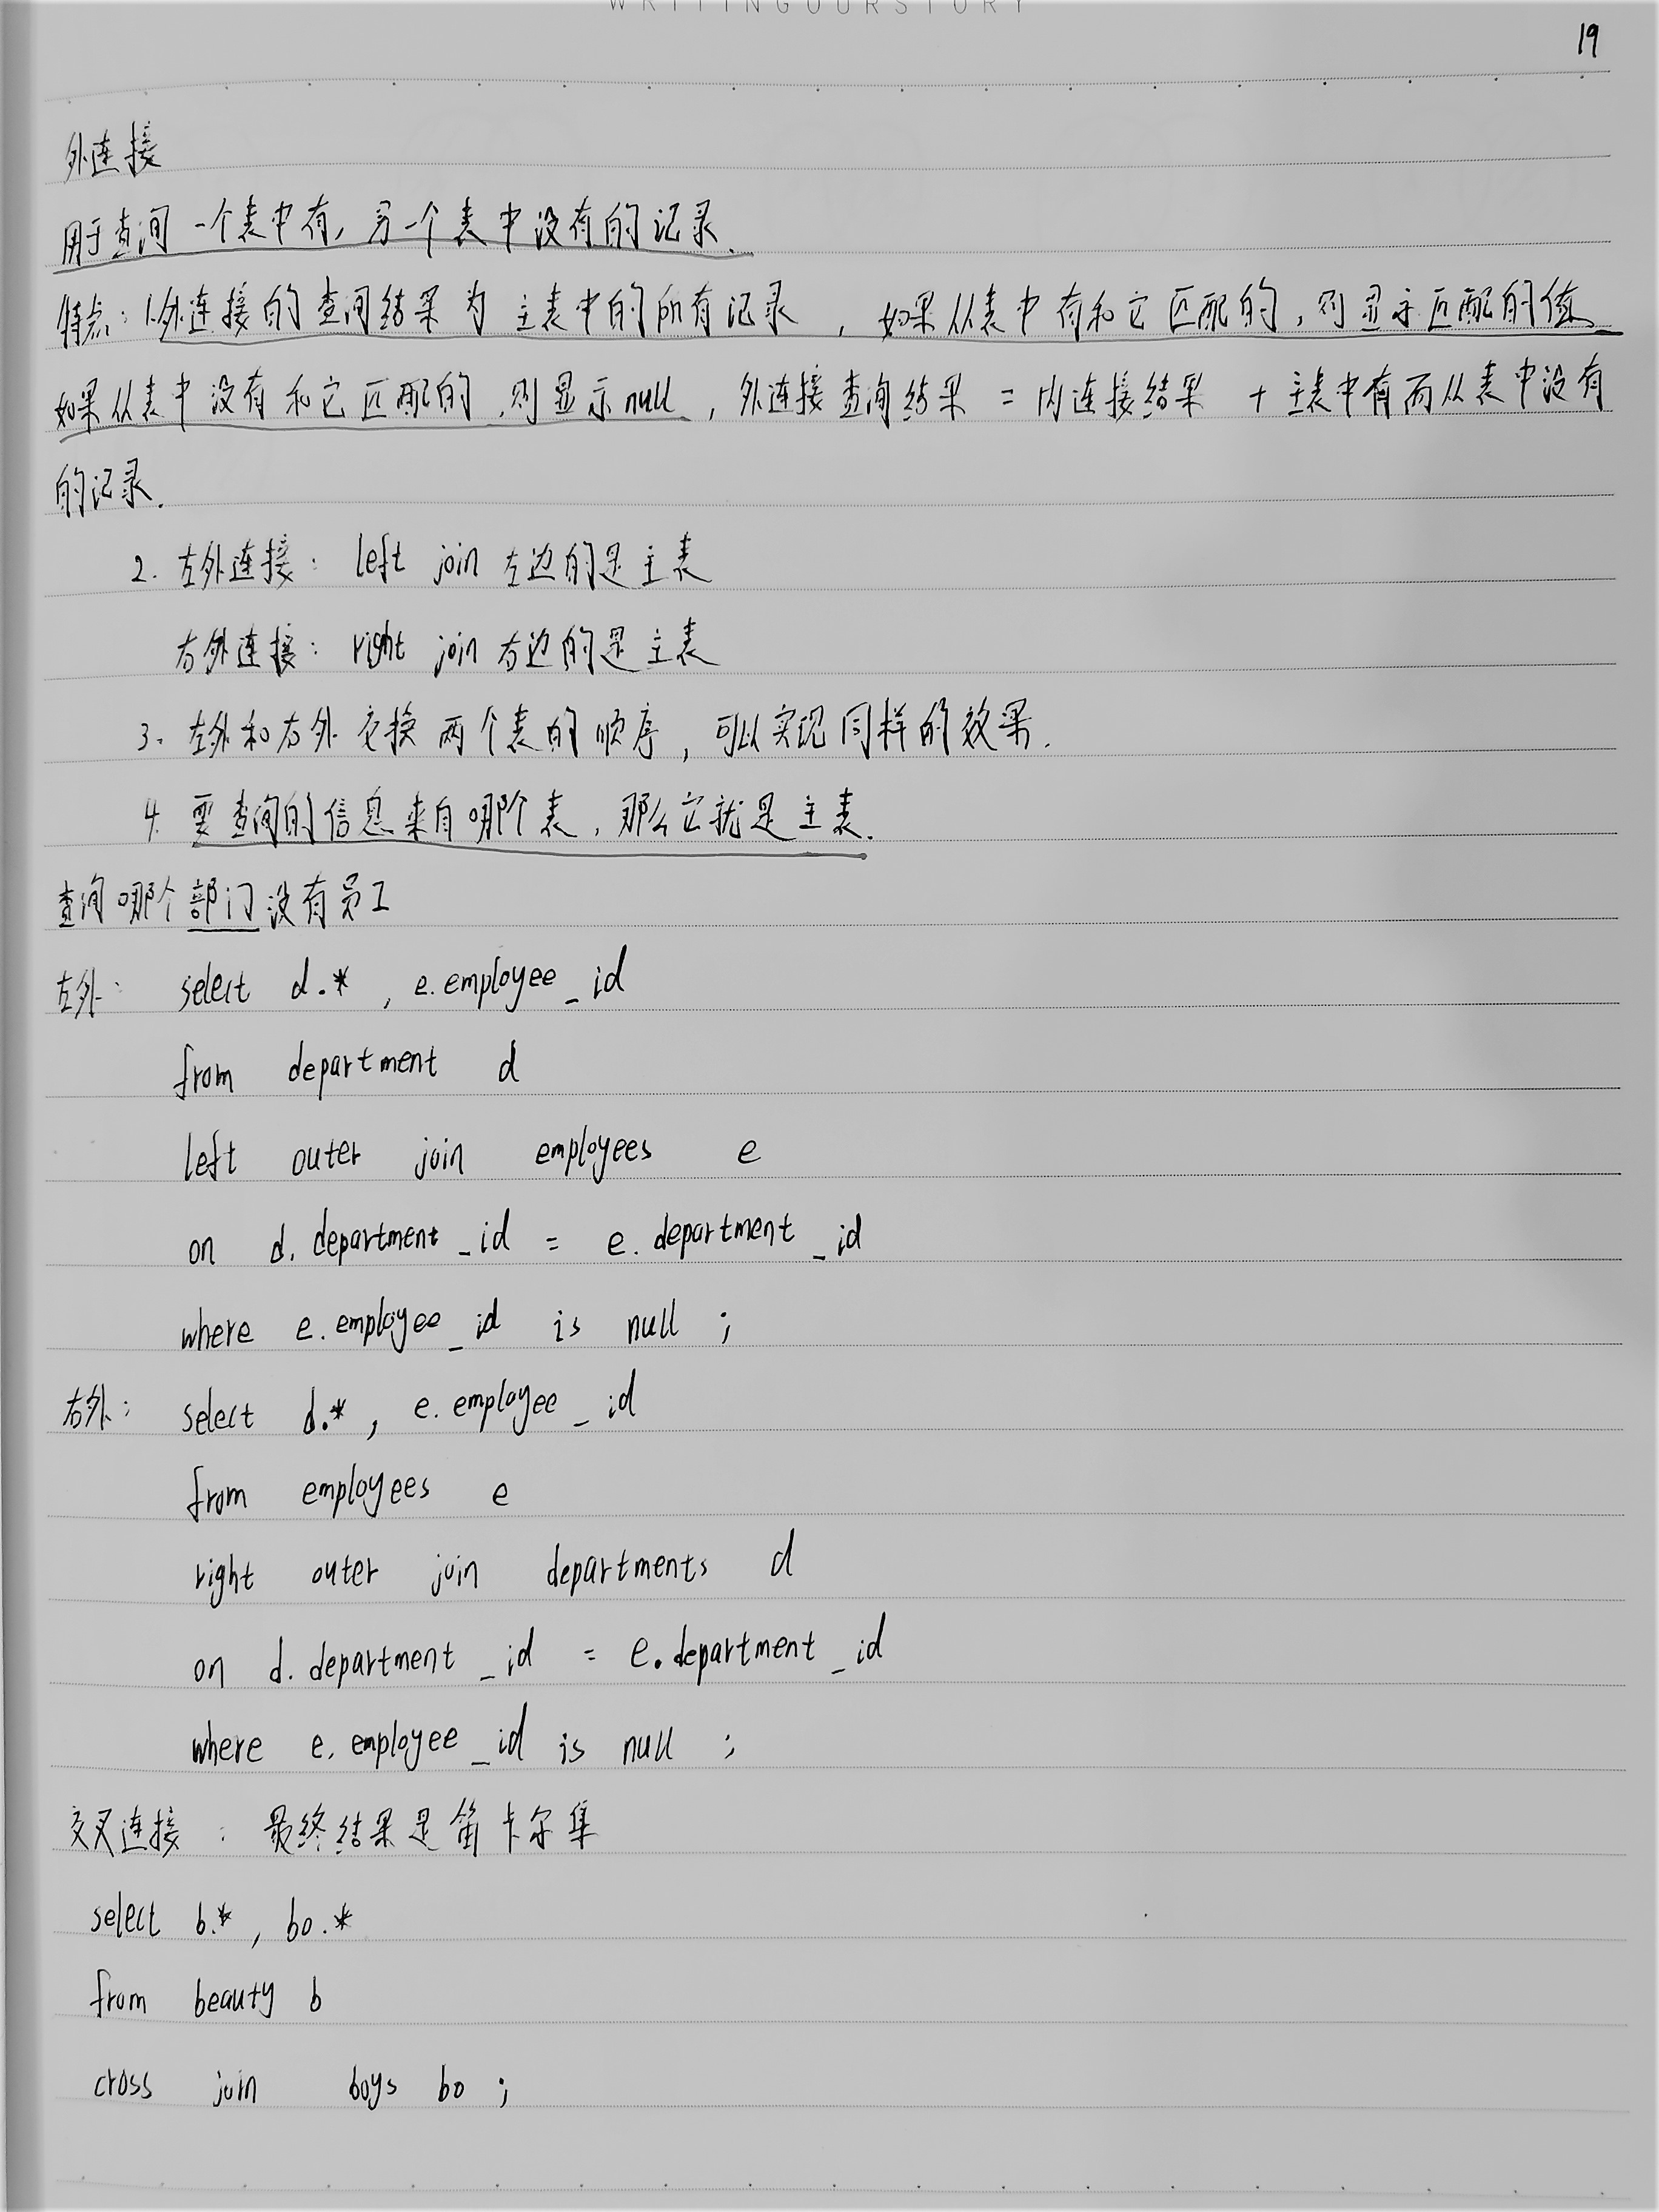 WRITINGOURSTORY
19
外连接
用于查询一个表中有，另一个表中没有的记录.
特点：1.外连接的查询结果为主表中的所有记录，如果从表中有和它匹配的，则显示匹配的值
如果从表中没有和它匹配的,则显示null，外连接查询结果 = 内连接结果 + 主表中有而从表中没有
的记录.
2. 左外连接： left join 左边的是主表
右外连接： right join 右边的是主表
3. 左外和右外交换两个表的顺序，可以实现同样的效果.
4. 要查询的信息来自哪个表，那么它就是主表.
查询哪个部门没有员工
左外： select d.* , e.employee_id
from department d
left outer join employees e
on d.department_id = e.department_id
where e.employee_id is null ;
右外： select d.* , e.employee_id
from employees e
right outer join departments d
on d.department_id = e.department_id
where e.employee_id is null ;
交叉连接 ： 最终结果是笛卡尔集
select b.* , bo.*
from beauty b
cross join boys bo ;